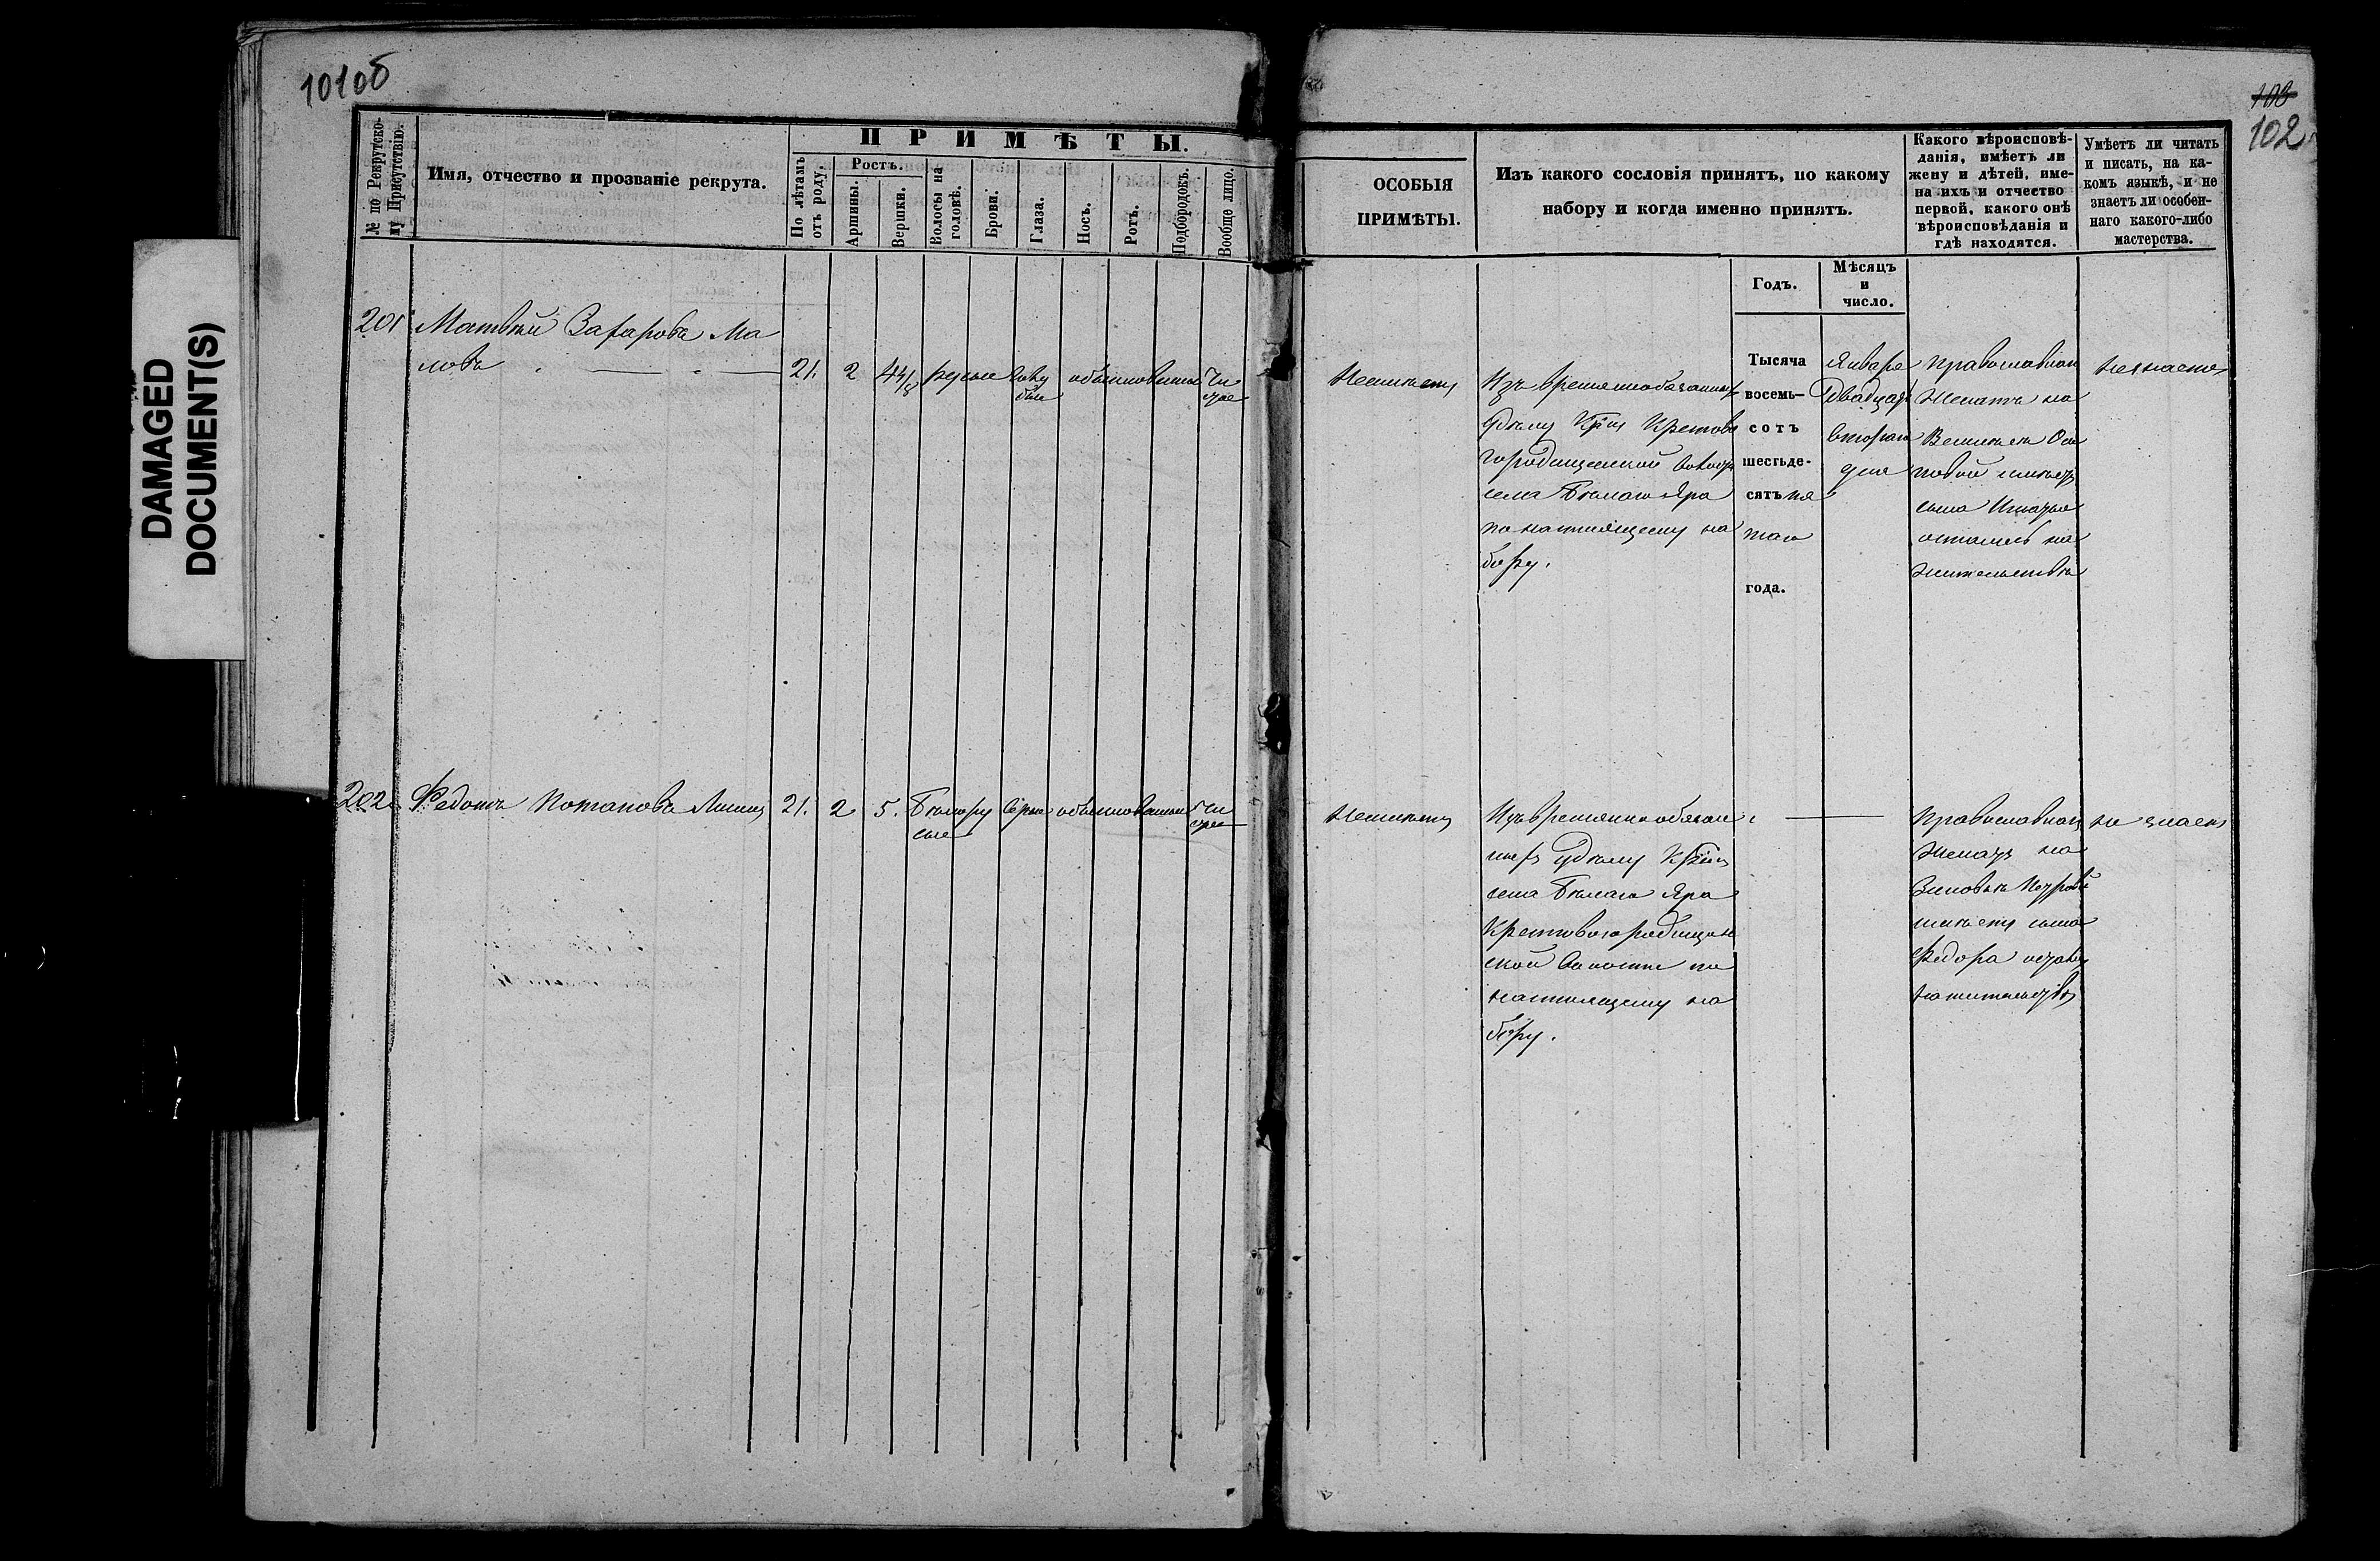 101об
103
102
DAMAGED
DOCUMENT(S)
№ по Рекрутско-
му Присутствію.
Имя, отчество и прозваніе рекрута.
ПРИМѢТЫ.
По лѣтамъ
отъ роду.
Ростъ.
Аршины.
Вершки.
Волосы на
головѣ.
Брови.
Глаза.
Носъ.
Ротъ.
Подбородокъ.
Вообще лицо.
ОСОБЫЯ
ПРИМѢТЫ.
Изъ какого сословія принятъ, по какому
набору и когда именно принятъ.
Какого вѣроисповѣ-
данія, имѣетъ ли
жену и дѣтей, име-
на ихъ и отчество
первой, какого онѣ
вѣроисповѣданія и
гдѣ находятся.
Умѣетъ ли читать
и писать, на ка-
комъ языкѣ, и не
знаетъ ли особен-
наго какого-либо
мастерства.
Годъ.
Мѣсяцъ
и
число.
201 Матвѣй Захаровъ Ма
ловъ
21. 2 4 4/8 Русые Голу
бые
обыкновенные Чи
стое
Неимѣетъ
Изъ временнообязанныхъ
удѣлу Кр-нъ Крестово
городищенской волости
села Бѣлаго Яра
по настоящему на
бору.
Тысяча
восемь-
сотъ
шестьде-
сятъ пя
таго
года.
Января
Двадцать
втораго
дня
Православнаго
Женатъ на
имѣетъ
сына Игнатья
остались на
жительствѣ
незнаетъ
202 Федотъ Потаповъ
21. 2 5. Бѣлору
сые
Серые обыкновенные Чи
стое
Неимѣетъ
Изъ временнообязан
ныхъ удѣлу Кр-нъ
села Бѣлаго Яра
Крестовогородищен
ской волости по
настоящему на
бору.
Православнаго
Женатъ на
Зиновьѣ Петровой
имѣетъ сына
Федора остались
на жительствѣ
не знаетъ